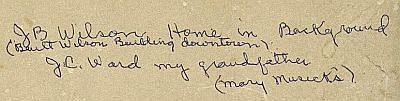 JB Wilson Home in Background
(Built Wilson Building downtown).
J.C. Ward my grandfather
(Mary Musick's)